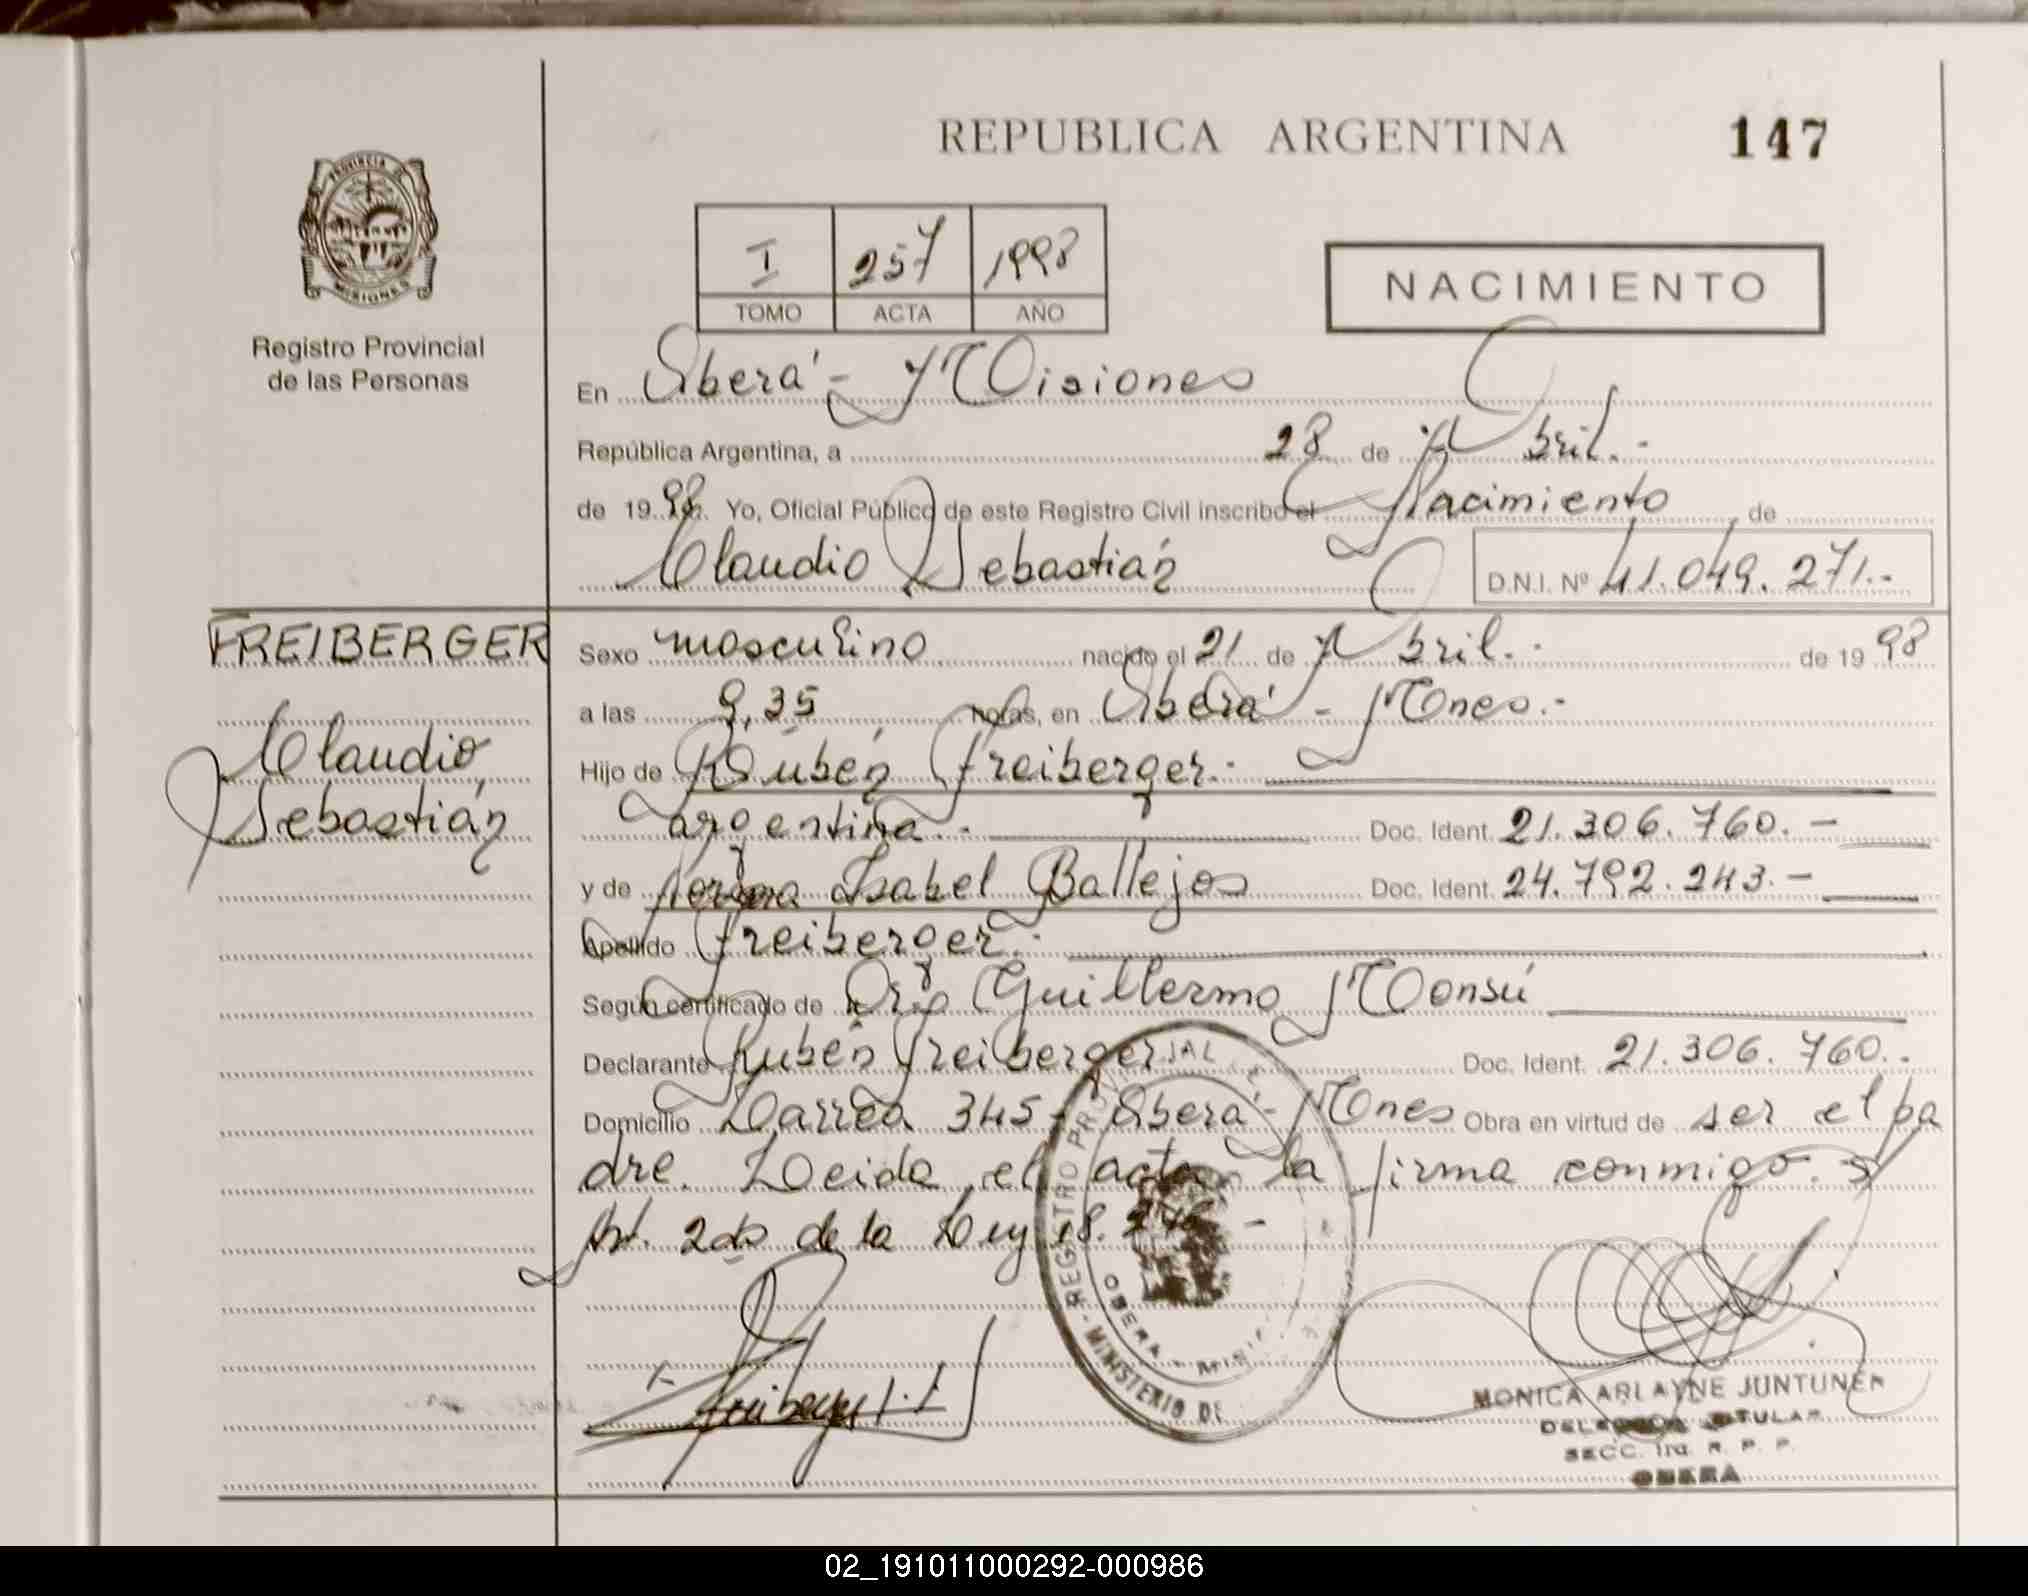 REPUBLICA ARGENTINA
147
PROVINCIA DE
MISIONES
Registro Provincial
de las Personas
I 257 1998
TOMO ACTA AÑO
NACIMIENTO
En Oberá - Misiones
República Argentina, a 28 de Abril.-
de 1998. Yo, Oficial Público de este Registro Civil inscribo el Nacimiento de
Claudio Sebastián D.N.I. Nº 41.049.271.-
FREIBERGER
Claudio
Sebastián
Sexo masculino nacido el 21 de Abril.- de 1998
a las 9,35 horas, en Oberá - Mnes.-
Hijo de Rubén Freiberger.-
argentina.- Doc. Ident. 21.306.760.-
y de Norma Isabel Ballejos Doc. Ident. 24.792.243.-
Apellido Freiberger.-
Según certificado de Dr. Guillermo Monsú
Declarante Rubén Freiberger Doc. Ident. 21.306.760.-
Domicilio Larrea 345 - Oberá - Mnes Obra en virtud de ser el pa
dre. Leida el acta la firma conmigo.
Art. 2do de la Ley 18.248 -
REGISTRO PROVINCIAL
OBERA - MISIONES
MINISTERIO DE
Freiberger
MONICA ARLAYNE JUNTUNEN
DELEGADA TITULAR
SECC. 1ra. R. P. P.
OBERA
02_191011000292-000986